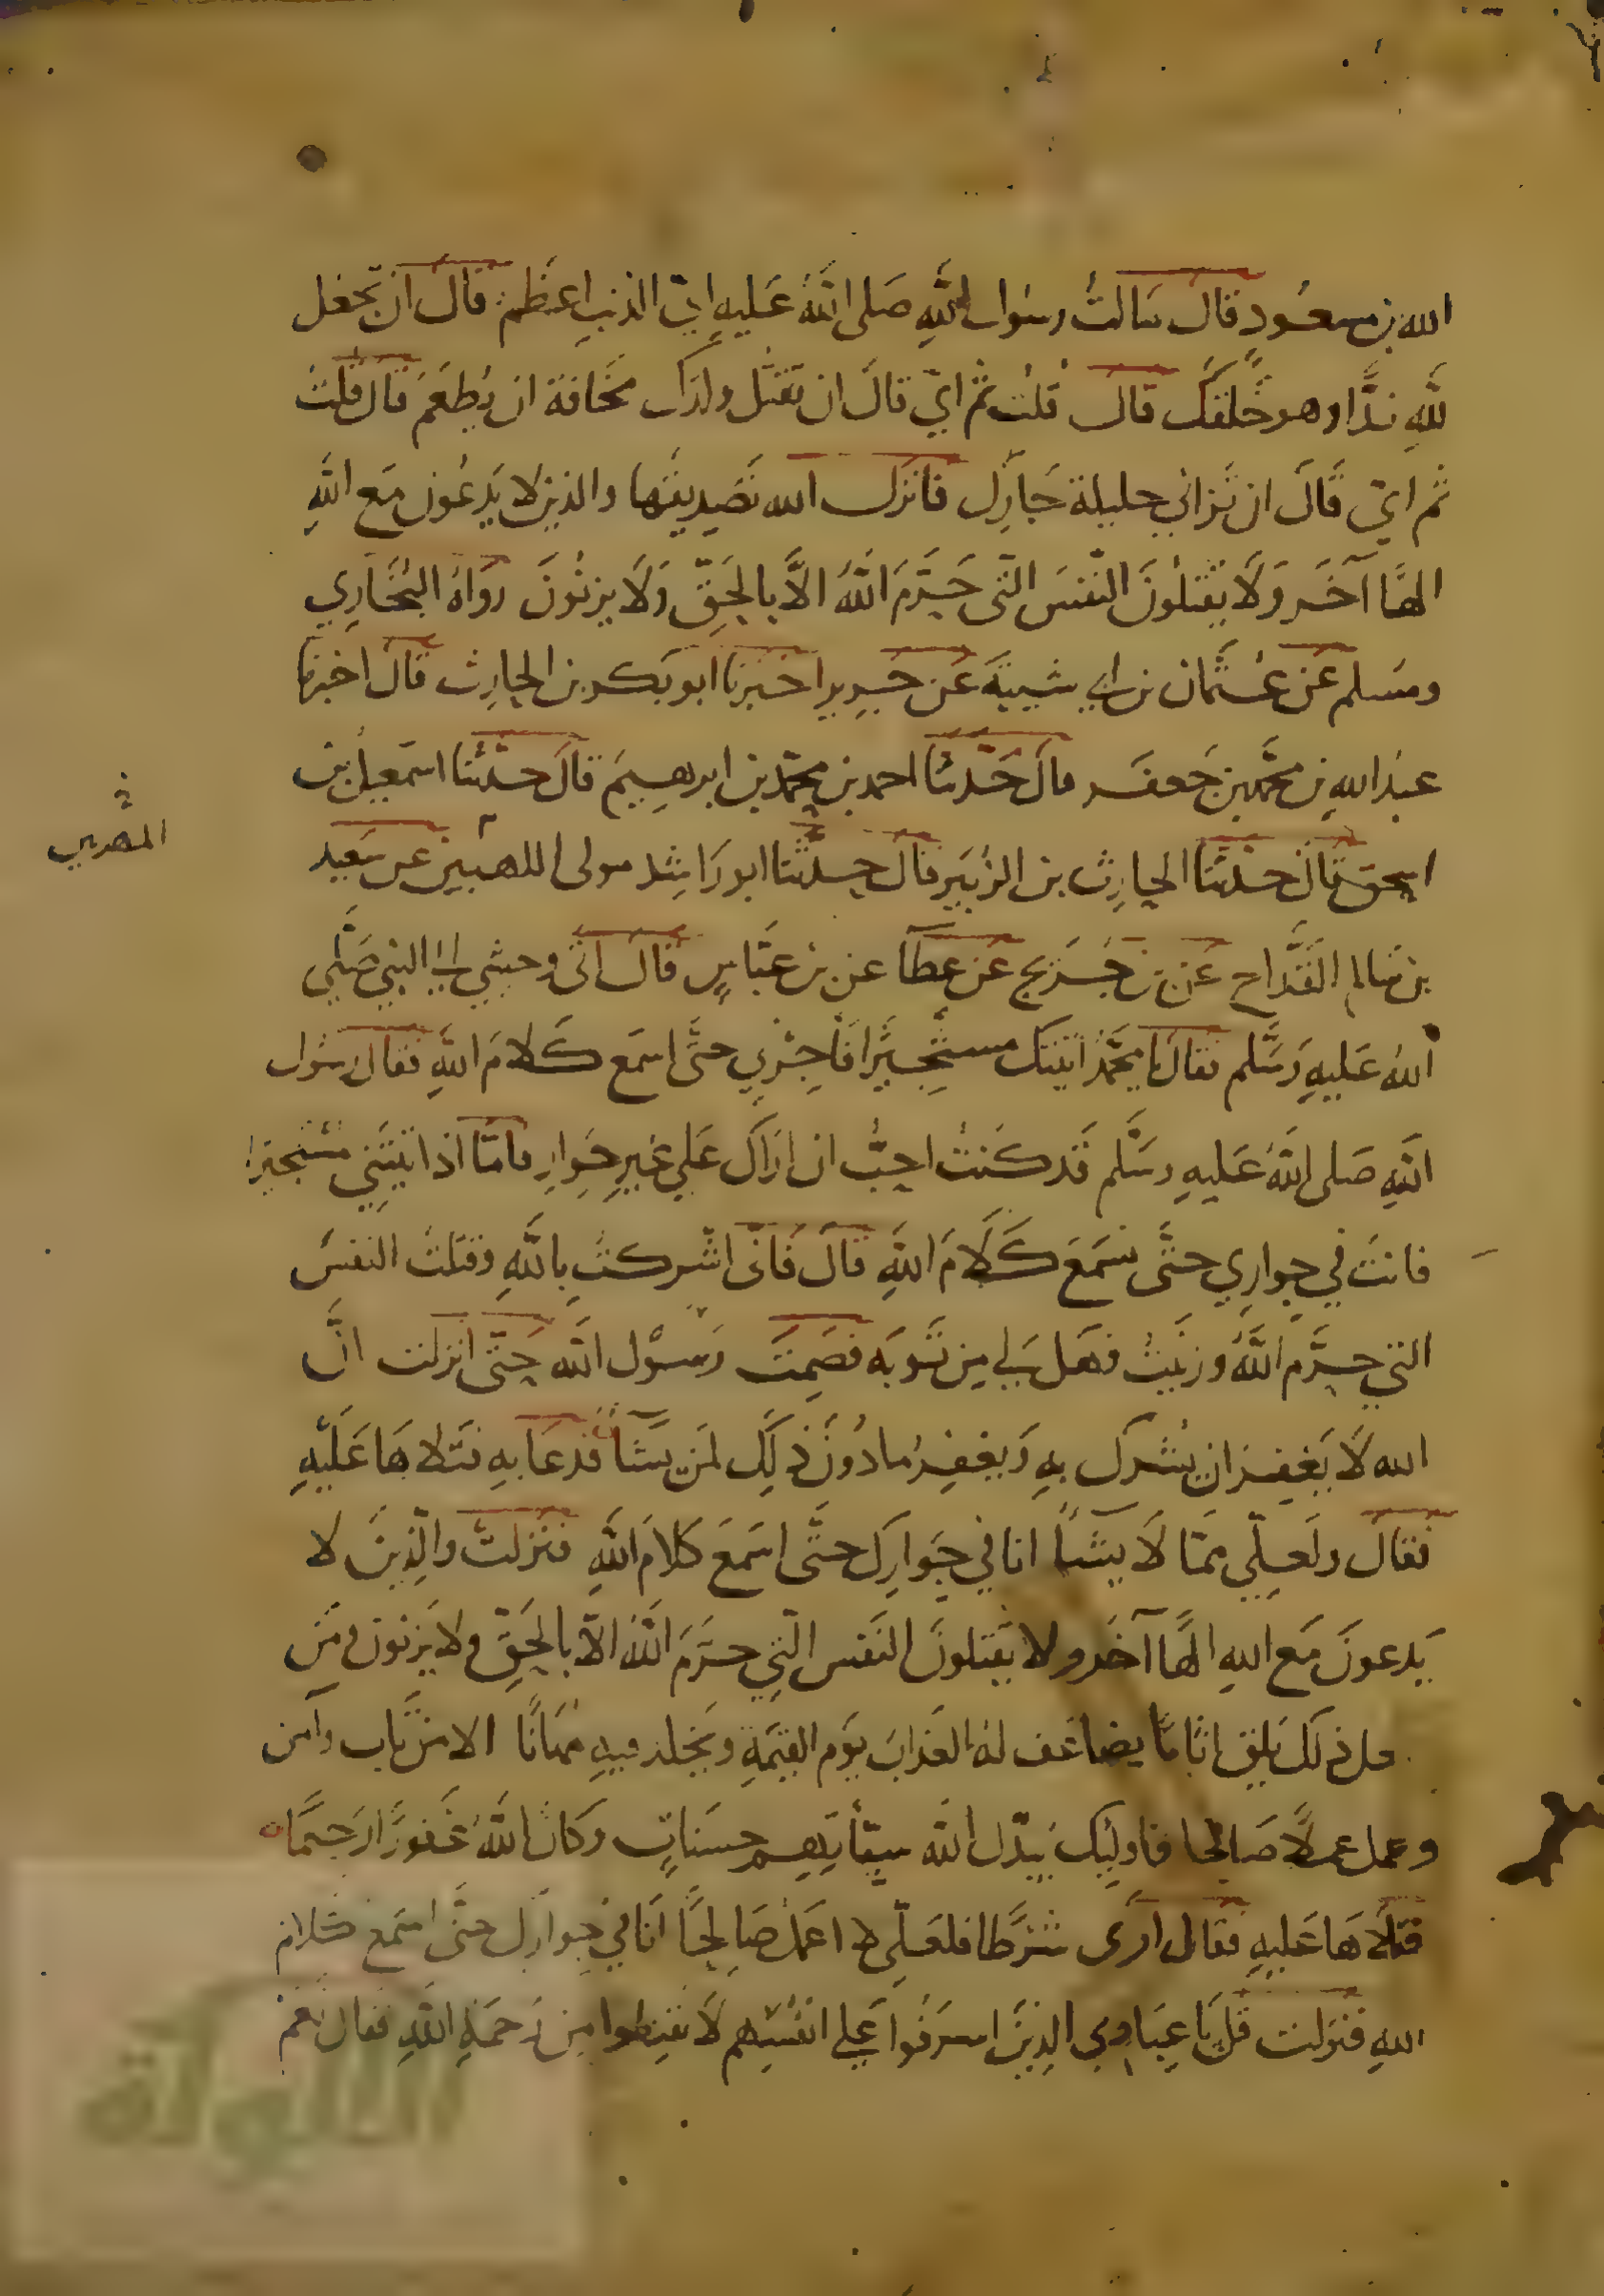 الله بن مسعُودٍ قالَ سَالتُ رسُول اللَّهِ صَلى اللَّهُ عَليهِ ايّ الذنبِ اعظَم قالَ ان تجعَل
للَّهِ ندًّا وهو خَلقَكَ قالَ قُلت ثم ايّ قالَ ان تقتُل ولدَك مخَافة ان يُطعَمَ قال قلتُ
ثم ايّ قالَ ان تُزانيَ حليلة جَارِك فانزَل الله تَصَديقَها والذين لا يَدعُون مَع اللَّهِ
الهًا آخَر وَلَا يَقتلُونَ النّفسَ الّتى حَرَّمَ اللَّهُ الاَّ بالحَقِّ وَلَا يزنُونَ روَاهُ البُخَارِي
ومسَلم عَن عُثمان بن ابي شيبَةَ عَن جَريرٍ اخبرنا ابو بَكر بن الحارِث قالَ اخبرنا
عبدُ اللهِ بن محمَّد بن جَعفَر قالَ حَدّثنا احمد بن محمّد بن ابرهيمَ قالَ حدَّثنا اسمَعيلُ بن
اسحق قالَ حَدّثنَا الحارِث بن الزُبَير قالَ حدثَّنا ابو رَاشِد مولى اللهَبيّين عن سَعيد
المصري
بن سَالم القَدَّاح عَن بن جُرَيج عَن عطآ عن بن عبَّاسٍ قالَ اتىَ وحشي الي النبي صَلَّي
اللهُ عَليهِ وَسَلَّم فقالَ يا محمَّدُ اتيتك مستجِيرًا فاَجِرْني حتَّى اسمَع كَلامَ اللَّهِ فقال رسُول
اللَّهِ صَلى اللَّهُ عَليهِ وسَلَّم قَد كنتُ احِبُّ ان ارَاك عَلي غيرِ جِوارٍ فامّا اذا تيتَني مستجيرًا
فانتَ في جِوارِي حتَّى تسَمَعَ كَلَامَ اللَّهِ قالَ فَانّى اشرَكتُ بِاللَّهِ وقتَلتُ النفسَ
التي حرَّم اللَّهُ وزنَيتُ فهَل لي مِن تَوبَه فصَمِتَ رَسُول اللَّه حَتّى انزلت انَّ
الله لَا يَغفِرُ ان يُشرَك بهِ وَيغفِرُ ما دُونَ ذَلِكَ لمَن يشَآ فدعَا بهِ فتَلاهَا عَلَيْهِ
فَقالَ ولَعِلّي ممّا لَا يشآ انا في جِوارِك حتَّى اسمَعَ كَلامَ اللَّهِ فنزلتْ والّذِينَ لا
يَدعونَ مَع اللهِ الهًا آخَر ولا يَقتلونَ النَفس الّتي حرَّمَ اللَّهُ الاّ بالحَقّ ولا يَزنون ومَن
يفعل ذلكَ يَلق اثَامًا يضاعَف لهُ العَذابَ يَوم القيمَةِ وَيَخلد فيهِ مُهانًا الا من تَاب وآمن
وعمل عملًا صَالحا فاوليِك يُبدّل اللَّه سيّآتِهِم حسَناتٍ وكَانَ اللَّهُ غَفورًا رَحيمًا
فتلَاهَا عَليهِ فقال ارى شرَطا فلعَلّي لا اعمَلُ صَالِحًا انَا في جِوارِك حتَّى اسمَع كَلام
اللهِ فنزلت قُل يَا عِبَادِي الذِينَ اسرَفُوا عَلي انفُسهم لَا تقنطوا مِن رَحمَةِ اللَّهِ فقال نعَم